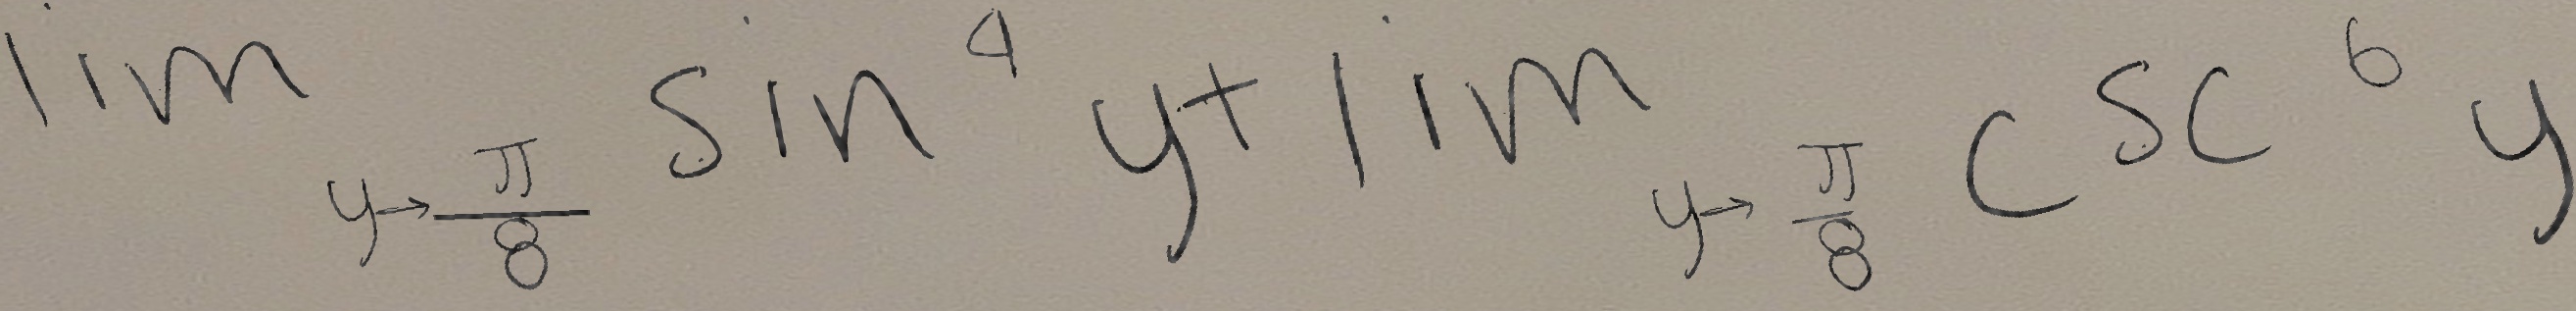 \lim_{y \to \frac{\pi}{8}} \sin^4 y + \lim_{y \to \frac{\pi}{8}} \csc^6 y